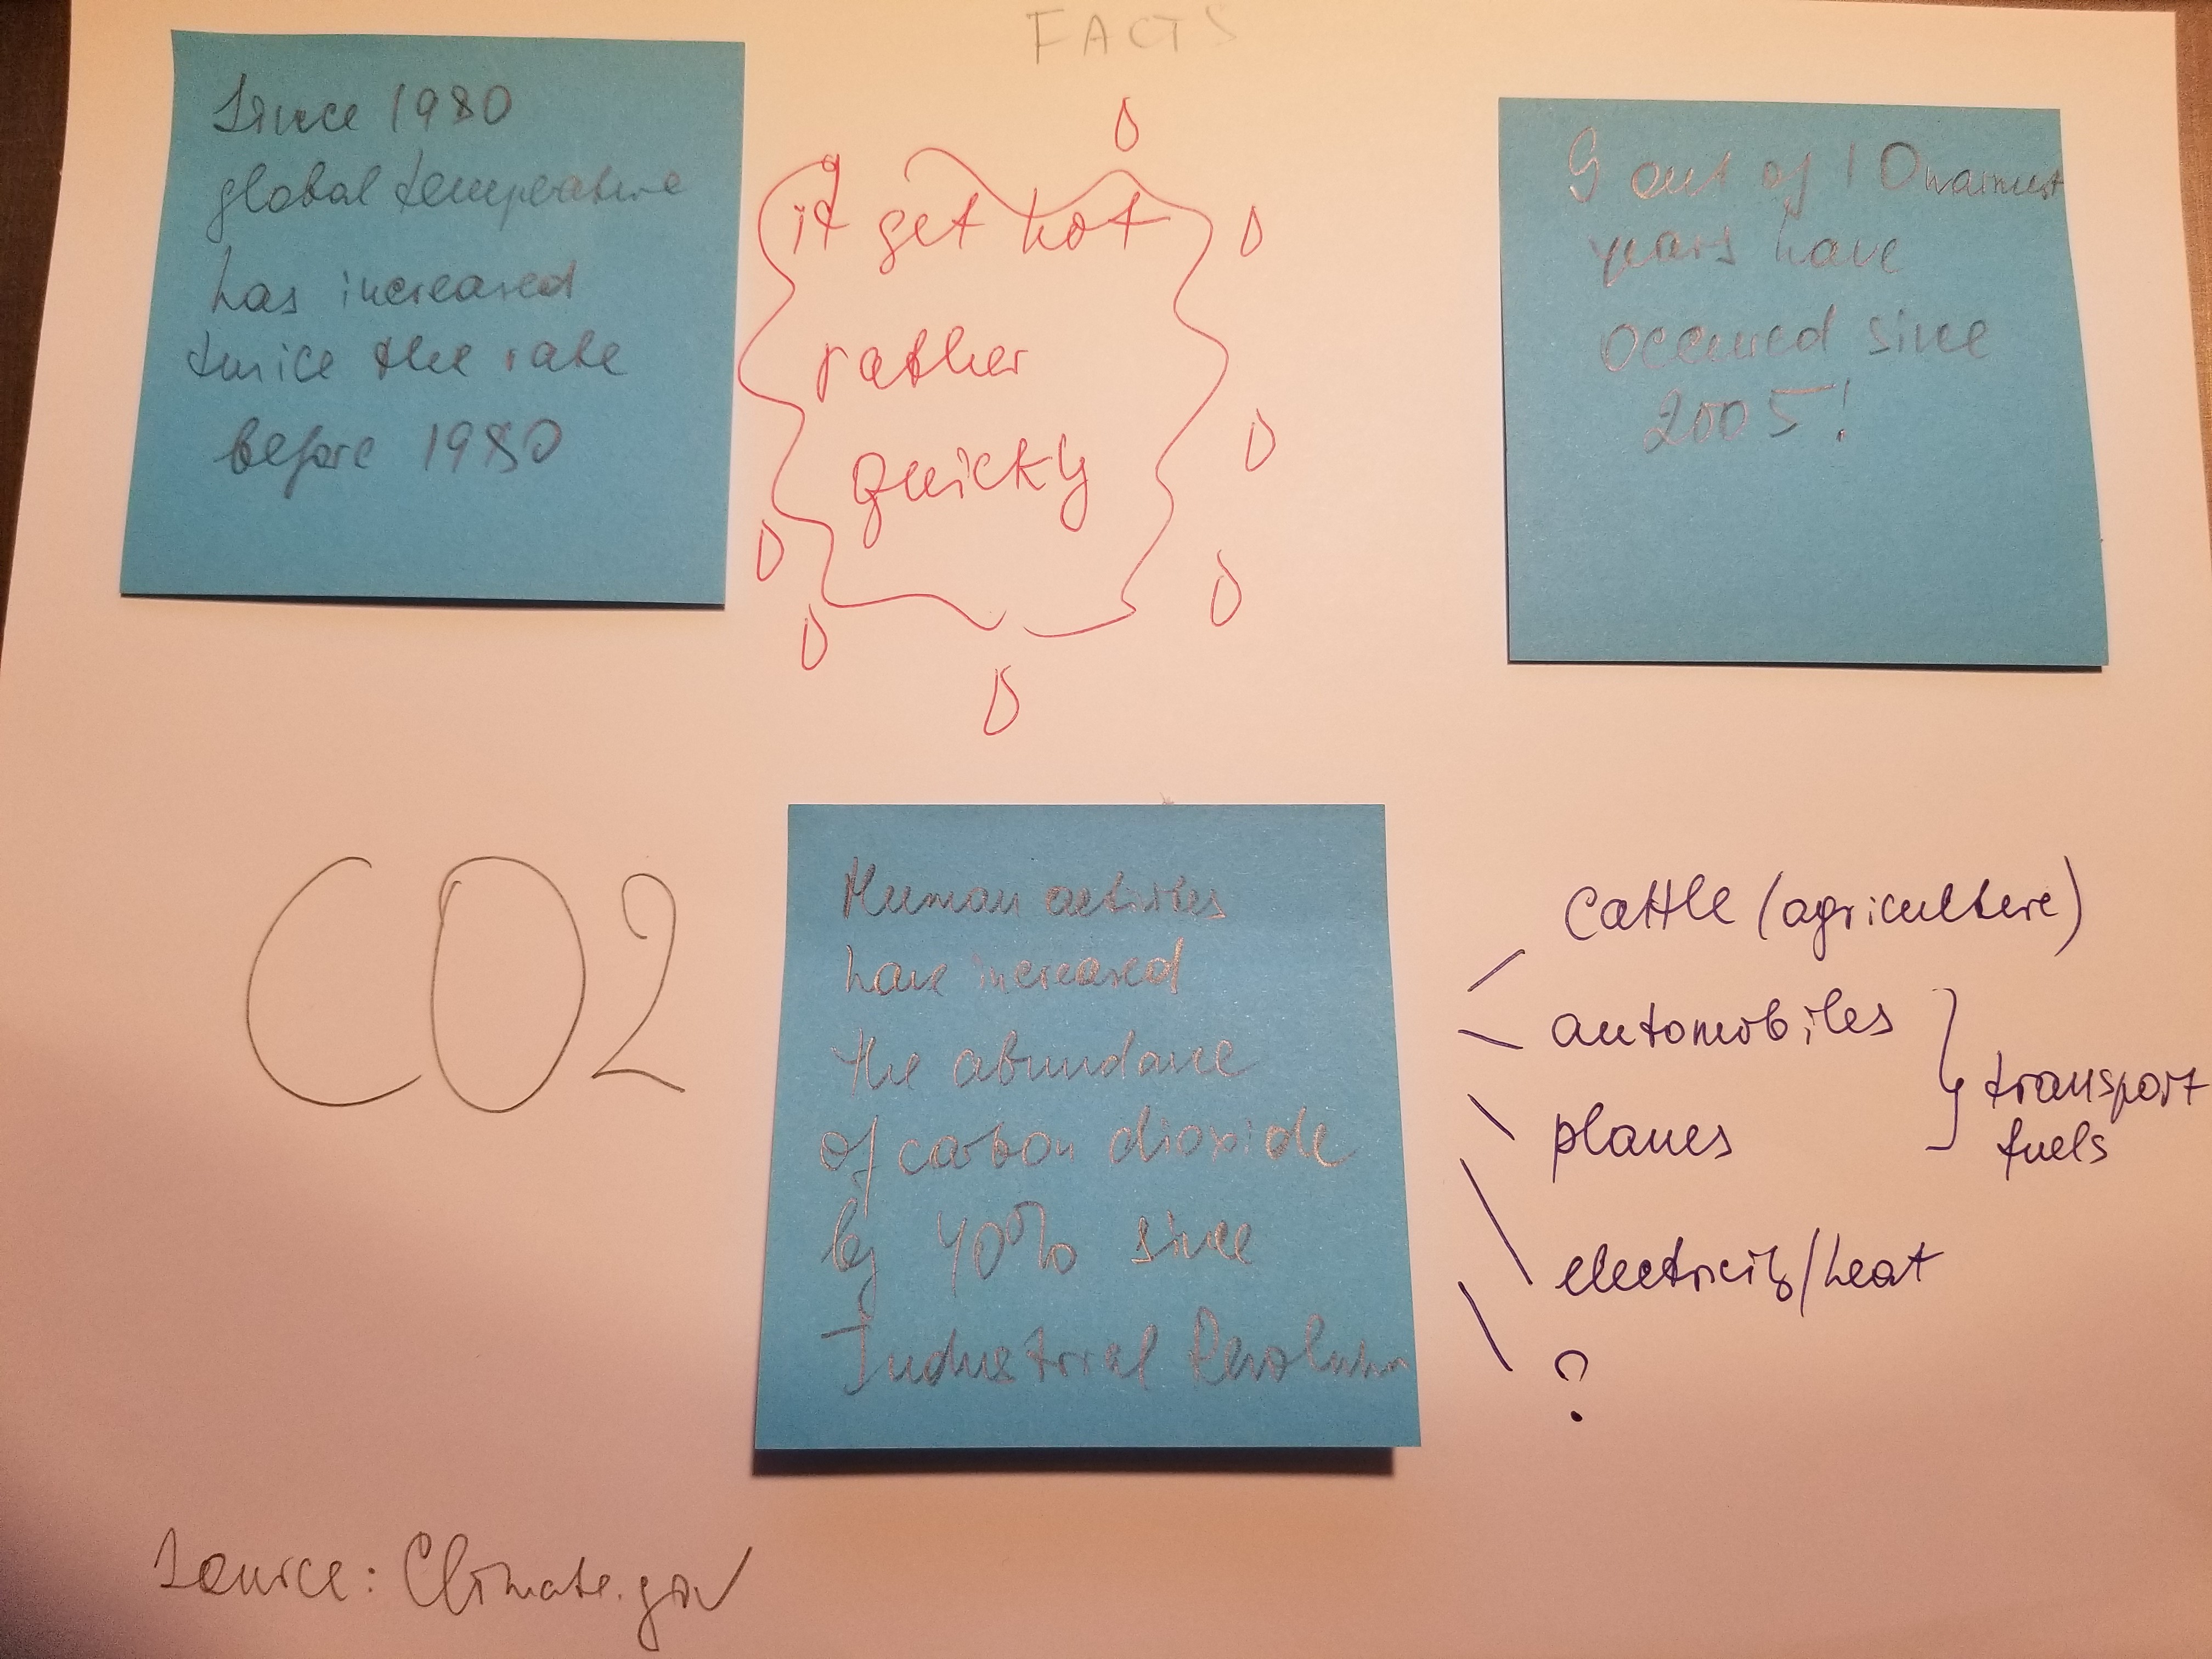 FACTS
Since 1980
global temperature
has increased
twice the rate
before 1980
it get hot
rather
quickly
9 out of 10 warmest
years have
occured since
2005!
CO2
Human activites
have increased
the abundance
of carbon dioxide
by 40% since
Industrial Revolution
cattle (agriculture)
automobiles
planes
transport
fuels
electricity/heat
?
Source: Climate.gov